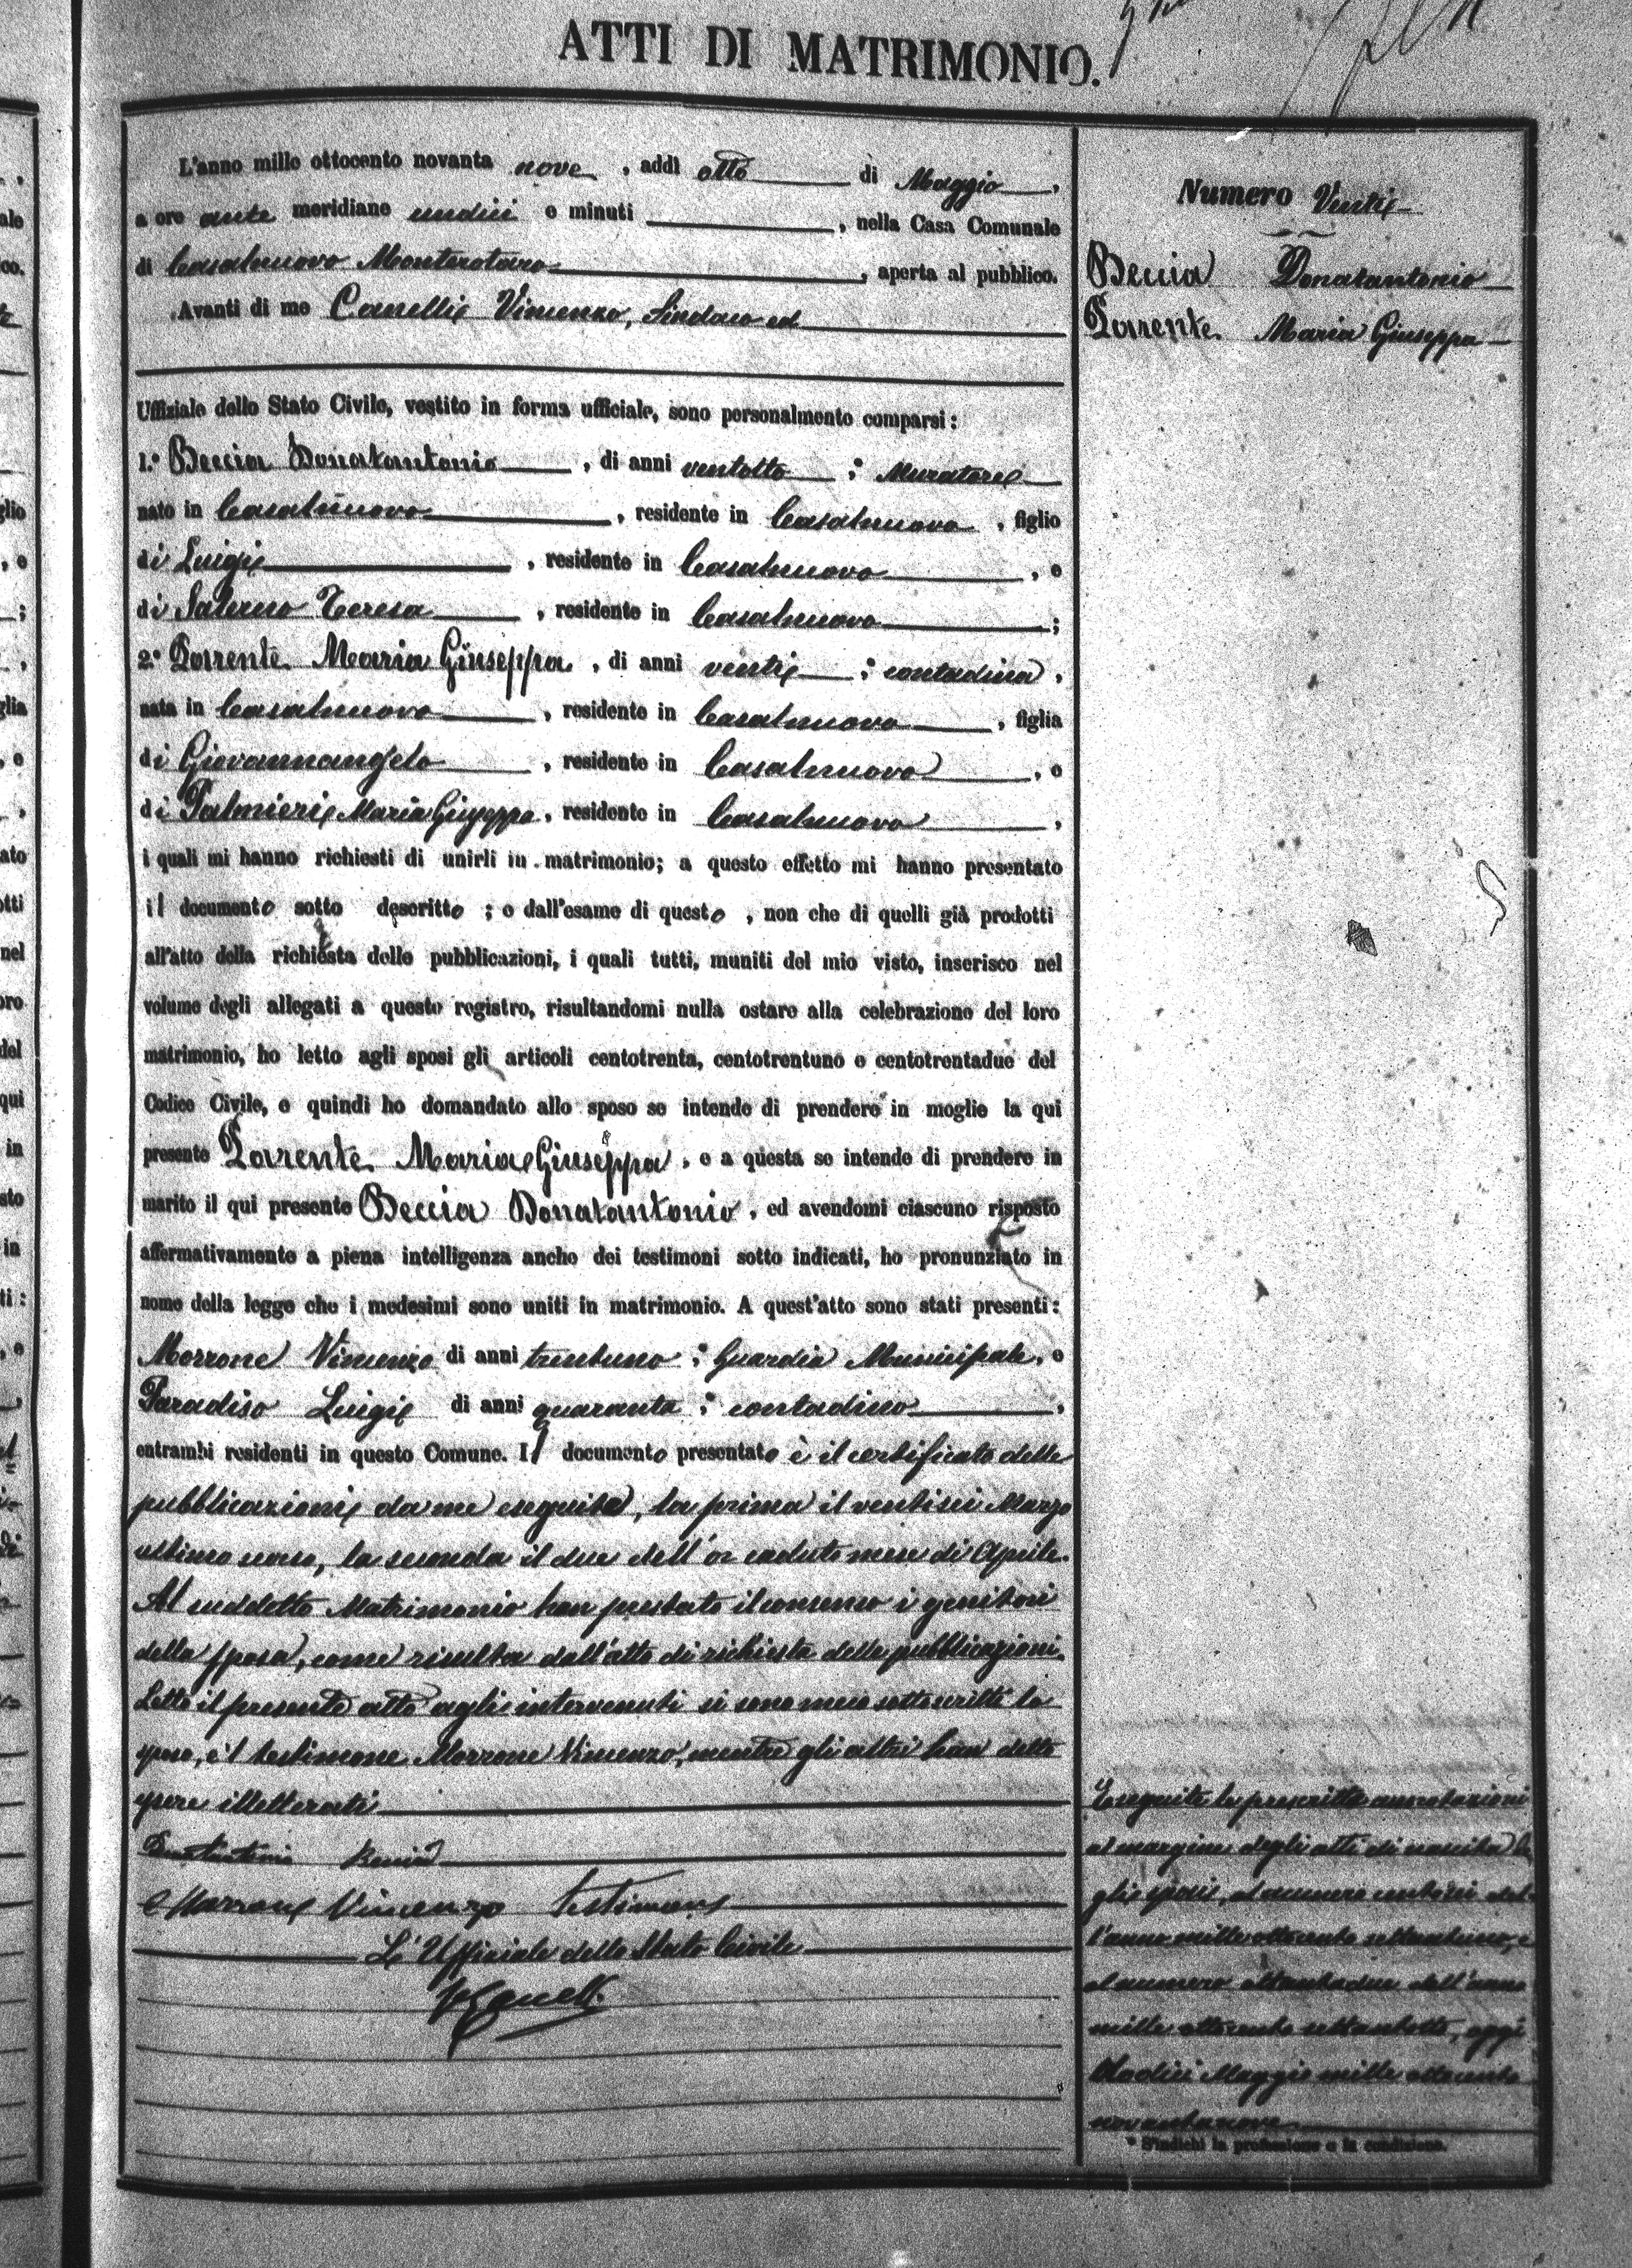 ATTI DI MATRIMONIO.
L'anno mille ottocento novanta nove, addì otto di Maggio,
a ore ante meridiane undici e minuti , nella Casa Comunale
di Casalnuovo Monterotaro, aperta al pubblico.
Avanti di me Canelli Vincenzo, Sindaco ed
Uffiziale dello Stato Civile, vestito in forma ufficiale, sono personalmente comparsi:
1.° Beccia Donatantonio, di anni ventotto; Muratore
nato in Casalnuovo, residente in Casalnuovo, figlio
di Luigi, residente in Casalnuovo, e
di Salerno Teresa, residente in Casalnuovo;
2.° Parente Maria Giuseppa, di anni venti; contadina,
nata in Casalnuovo, residente in Casalnuovo, figlia
di Giovannangelo, residente in Casalnuovo, e
di Palmieri Maria Giuseppa, residente in Casalnuovo,
i quali mi hanno richiesti di unirli in matrimonio; a questo effetto mi hanno presentato
il documento sotto descritto; e dall'esame di questo, non che di quelli già prodotti
all'atto della richiesta delle pubblicazioni, i quali tutti, muniti del mio visto, inserisco nel
volume degli allegati a questo registro, risultandomi nulla ostare alla celebrazione del loro
matrimonio, ho letto agli sposi gli articoli centotrenta, centotrentuno e centotrentadue del
Codice Civile, e quindi ho domandato allo sposo se intende di prendere in moglie la qui
presente Parente Maria Giuseppa, e a questa se intende di prendere in
marito il qui presente Beccia Donatantonio, ed avendomi ciascuno risposto
affermativamente a piena intelligenza anche dei testimoni sotto indicati, ho pronunziato in
nome della legge che i medesimi sono uniti in matrimonio. A quest'atto sono stati presenti:
Morrone Vincenzo di anni trentuno; Guardia Municipale, e
Paradiso Luigi di anni quaranta; contadino,
entrambi residenti in questo Comune. Il documento presentato è il certificato delle
pubblicazioni da me eseguite, la prima il ventisei Marzo
ultimo scorso, la seconda il due dell'or caduto mese di Aprile.
Al suddetto Matrimonio han prestato il consenso i genitori
della sposa, come risulta dall'atto di richiesta delle pubblicazioni.
Letto il presente atto agli intervenuti si sono meco sottoscritti lo
sposo, e'l testimone Morrone Vincenzo, mentre gli altri han detto
essere illetterati
Donatantonio Beccia
Morrone Vincenzo testimone
L'Ufficiale dello Stato Civile
Canelli
Numero Venti
Beccia Donatantonio
Parente Maria Giuseppa
Eseguite le prescritte annotazioni
al margine degli atti di nascita de
gli sposi, al numero
l'anno mille ottocento settantuno, e
al numero ottantadue dell'anno
mille ottocento settantotto, oggi
Maggio mille ottocento
novantanove
* S'indichi la professione o la condizione.